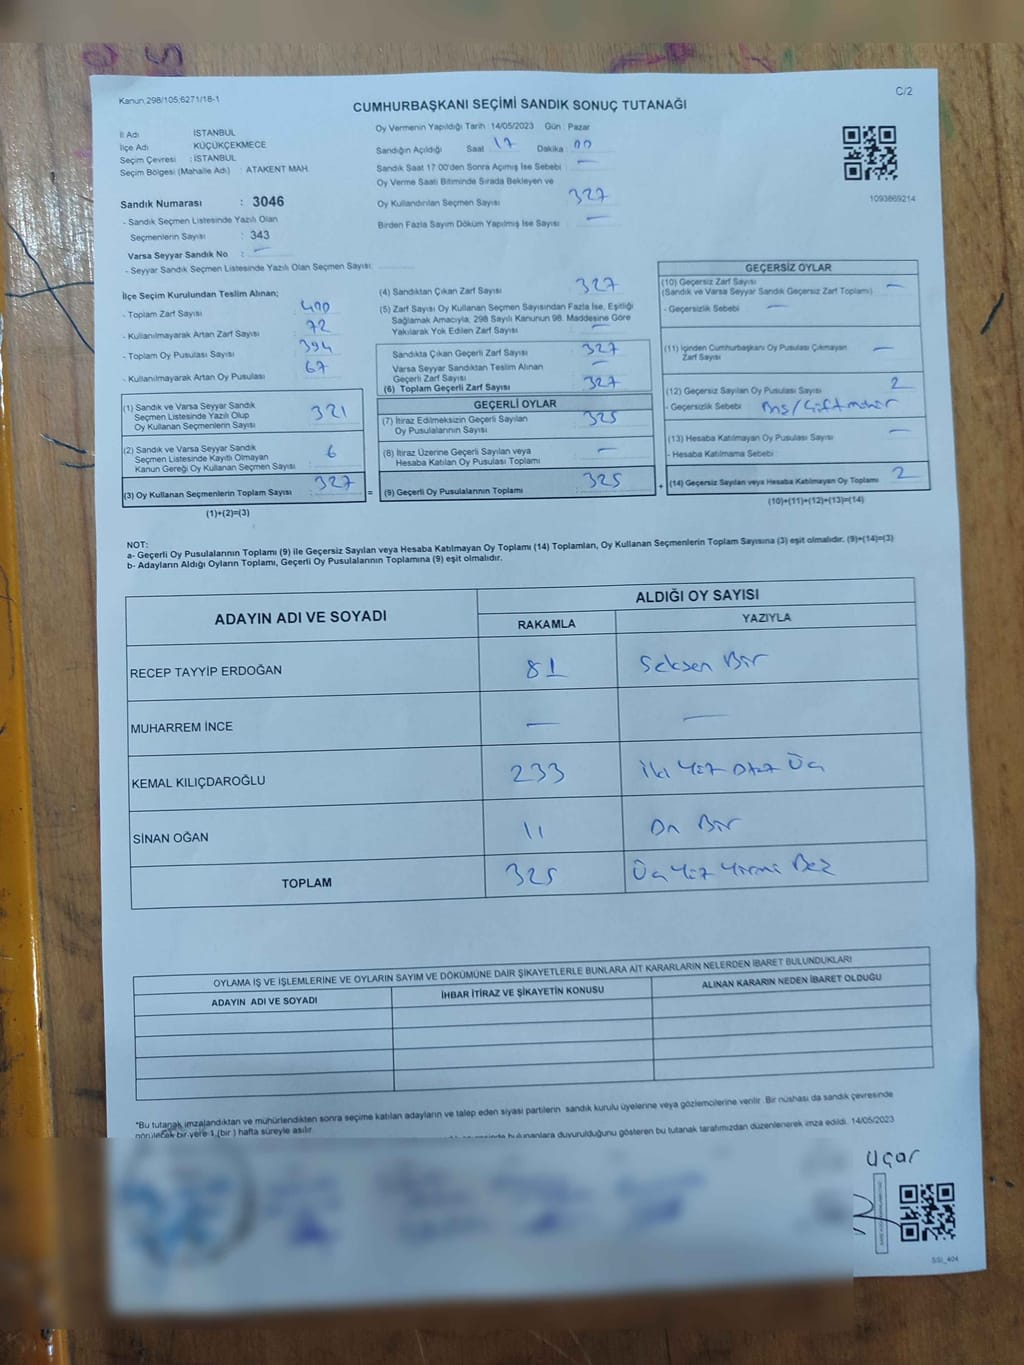 Kanun:298/105;6271/18-1
C/2
CUMHURBAŞKANI SEÇİMİ SANDIK SONUÇ TUTANAĞI
İl Adı İSTANBUL
İlçe Adı KÜÇÜKÇEKMECE
Seçim Çevresi : İSTANBUL
Seçim Bölgesi (Mahalle Adı) : ATAKENT MAH.
Oy Vermenin Yapıldığı Tarih : 14/05/2023 Gün : Pazar
Sandığın Açıldığı Saat 17 Dakika 00
Sandık Saat 17:00'den Sonra Açılmış İse Sebebi : —
Oy Verme Saati Bitiminde Sırada Bekleyen ve
Oy Kullandırılan Seçmen Sayısı 327
Birden Fazla Sayım Döküm Yapılmış İse Sayısı : —
1093869214
Sandık Numarası : 3046
- Sandık Seçmen Listesinde Yazılı Olan
Seçmenlerin Sayısı : 343
Varsa Seyyar Sandık No : —
- Seyyar Sandık Seçmen Listesinde Yazılı Olan Seçmen Sayısı:
İlçe Seçim Kurulundan Teslim Alınan;
- Toplam Zarf Sayısı : 400
- Kullanılmayarak Artan Zarf Sayısı : 72
- Toplam Oy Pusulası Sayısı : 394
- Kullanılmayarak Artan Oy Pusulası : 67
(1) Sandık ve Varsa Seyyar Sandık
Seçmen Listesinde Yazılı Olup
Oy Kullanan Seçmenlerin Sayısı 321
(2) Sandık ve Varsa Seyyar Sandık
Seçmen Listesinde Kayıtlı Olmayan
Kanun Gereği Oy Kullanan Seçmen Sayısı : 6
(3) Oy Kullanan Seçmenlerin Toplam Sayısı : 327
(1)+(2)=(3)
(4) Sandıktan Çıkan Zarf Sayısı : 327
(5) Zarf Sayısı Oy Kullanan Seçmen Sayısından Fazla İse, Eşitliği
Sağlamak Amacıyla, 298 Sayılı Kanunun 98. Maddesine Göre
Yakılarak Yok Edilen Zarf Sayısı : —
Sandıkta Çıkan Geçerli Zarf Sayısı : 327
Varsa Seyyar Sandıktan Teslim Alınan
Geçerli Zarf Sayısı : —
(6) Toplam Geçerli Zarf Sayısı : 327
=
GEÇERLİ OYLAR
(7) İtiraz Edilmeksizin Geçerli Sayılan
Oy Pusulalarının Sayısı : 325
(8) İtiraz Üzerine Geçerli Sayılan veya
Hesaba Katılan Oy Pusulası Toplamı : —
(9) Geçerli Oy Pusulalarının Toplamı : 325
+
GEÇERSİZ OYLAR
(10) Geçersiz Zarf Sayısı
(Sandık ve Varsa Seyyar Sandık Geçersiz Zarf Toplamı) : —
- Geçersizlik Sebebi : —
(11) İçinden Cumhurbaşkanı Oy Pusulası Çıkmayan
Zarf Sayısı : —
(12) Geçersiz Sayılan Oy Pusulası Sayısı : 2
- Geçersizlik Sebebi
(13) Hesaba Katılmayan Oy Pusulası Sayısı : —
- Hesaba Katılmama Sebebi
(14) Geçersiz Sayılan veya Hesaba Katılmayan Oy Toplamı : 2
(10)+(11)+(12)+(13)=(14)
NOT:
a- Geçerli Oy Pusulalarının Toplamı (9) ile Geçersiz Sayılan veya Hesaba Katılmayan Oy Toplamı (14) Toplamları, Oy Kullanan Seçmenlerin Toplam Sayısına (3) eşit olmalıdır. (9)+(14)=(3)
b- Adayların Aldığı Oyların Toplamı, Geçerli Oy Pusulalarının Toplamına (9) eşit olmalıdır.
ADAYIN ADI VE SOYADI
ALDIĞI OY SAYISI
RAKAMLA YAZIYLA
RECEP TAYYİP ERDOĞAN 81 Seksen Bir
MUHARREM İNCE — —
KEMAL KILIÇDAROĞLU 233 İki Yüz Otuz Üç
SİNAN OĞAN 11 On Bir
TOPLAM 325 Üç Yüz Yirmi Beş
OYLAMA İŞ VE İŞLEMLERİNE VE OYLARIN SAYIM VE DÖKÜMÜNE DAİR ŞİKAYETLERLE BUNLARA AİT KARARLARIN NELERDEN İBARET BULUNDUKLARI
ADAYIN ADI VE SOYADI İHBAR İTİRAZ VE ŞİKAYETİN KONUSU ALINAN KARARIN NEDEN İBARET OLDUĞU
*Bu tutanak imzalandıktan ve mühürlendikten sonra seçime katılan adayların ve talep eden siyasi partilerin sandık kurulu üyelerine veya gözlemcilerine verilir. Bir nüshası da sandık çevresinde
görülecek bir yere 1 (bir) hafta süreyle asılır.
bulunanlara duyurulduğunu gösteren bu tutanak tarafımızdan düzenlenerek imza edildi. 14/05/2023
Uçar
SSİ_404